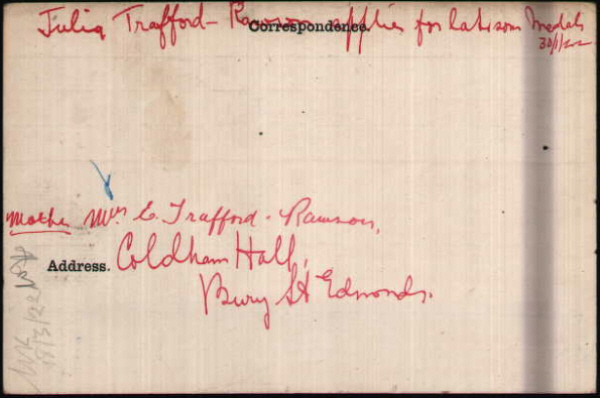 Julia Trafford - Rawson applies for late son's Medals
Correspondence.
30/1/22
Mother Mrs C. Trafford - Rawson,
Address. Coldham Hall,
Bury St Edmonds.
18/3/22